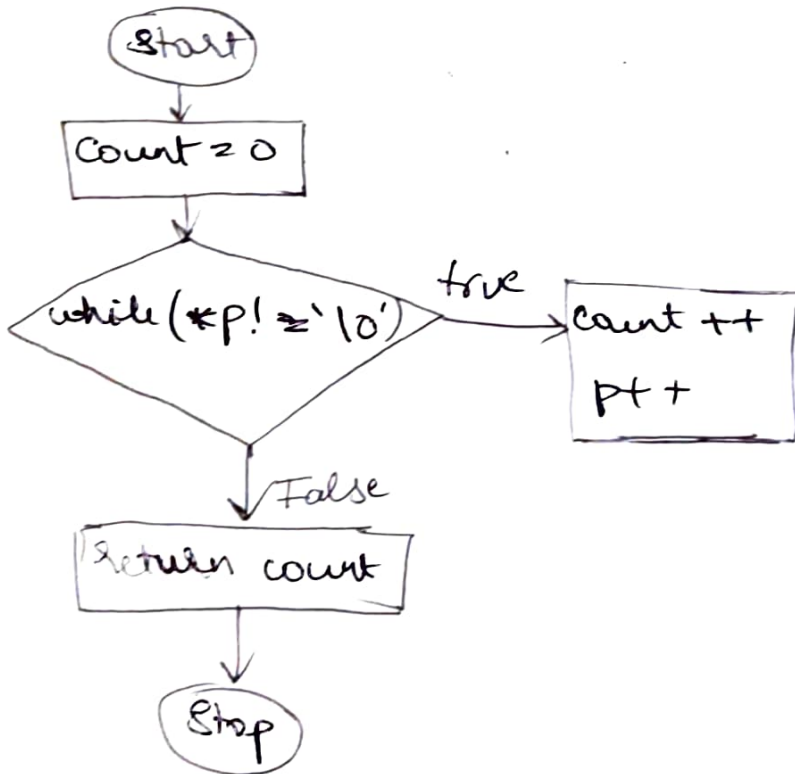 Start
Count = 0
while (*p! = '\0')
true
count ++
p++
False
return count
Stop